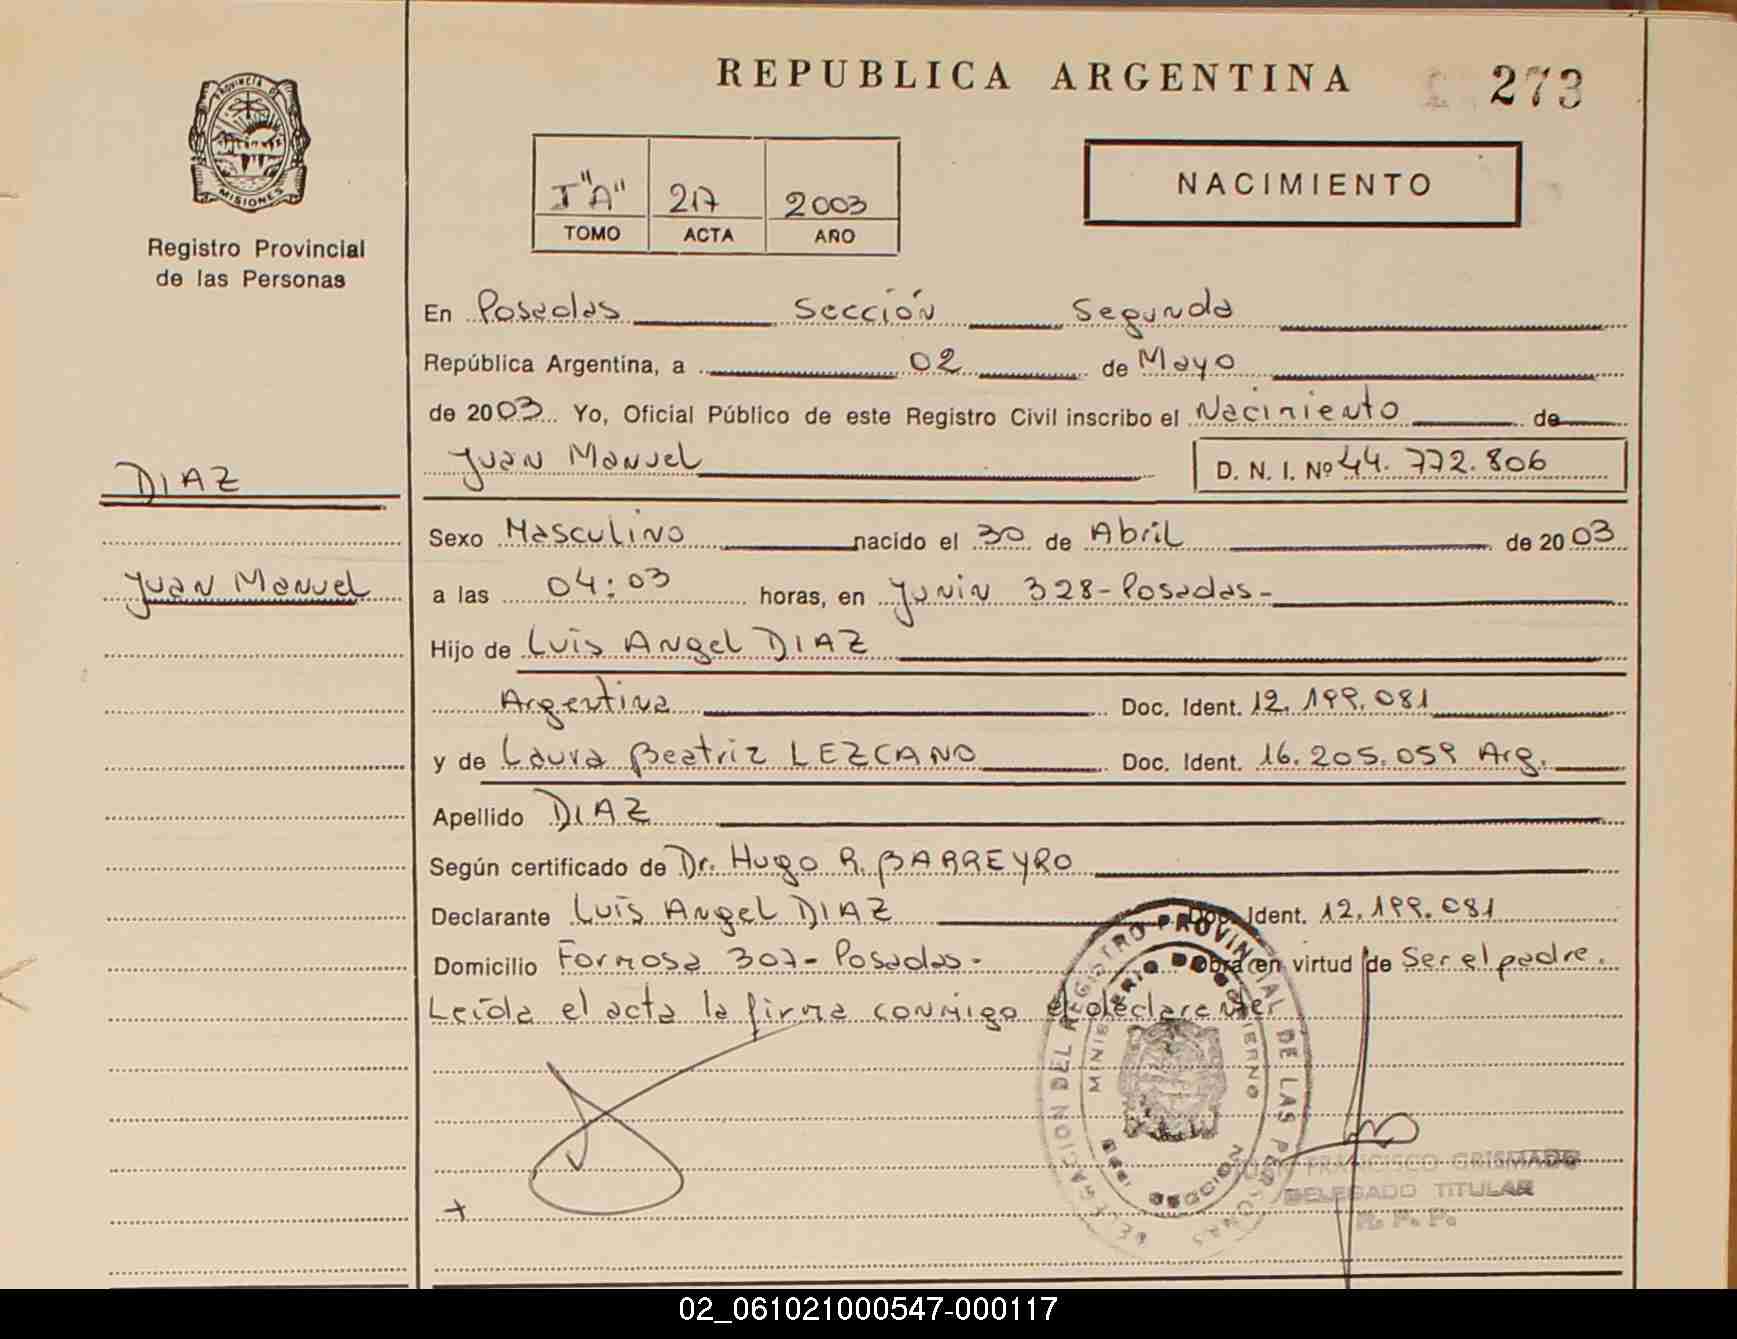 REPUBLICA ARGENTINA
273
PROVINCIA DE
MISIONES
Registro Provincial
de las Personas
I "A" 217 2003
TOMO ACTA AÑO
NACIMIENTO
En Posadas Sección Segunda
República Argentina, a 02 de Mayo
de 2003 Yo, Oficial Público de este Registro Civil inscribo el Nacimiento de
Juan Manuel D. N. I. Nº 44.772.806
DIAZ
Juan Manuel
Sexo Masculino nacido el 30 de Abril de 2003
a las 04:03 horas, en Junin 328-Posadas-
Hijo de Luis Angel DIAZ
Argentina Doc. Ident. 12.199.081
y de Laura Beatriz LEZCANO Doc. Ident. 16.205.059 Arg.
Apellido DIAZ
Según certificado de Dr. Hugo R. BARREYRO
Declarante Luis Angel DIAZ Doc. Ident. 12.199.081
Domicilio Formosa 307-Posadas- Obra en virtud de Ser el padre.
Leída el acta la firma conmigo el declarante
DELEGACION DEL REGISTRO PROVINCIAL DE LAS PERSONAS
MINISTERIO DE GOBIERNO
SECCION
FRANCISCO GRISMADO
DELEGADO TITULAR
R. P. P.
02_061021000547-000117